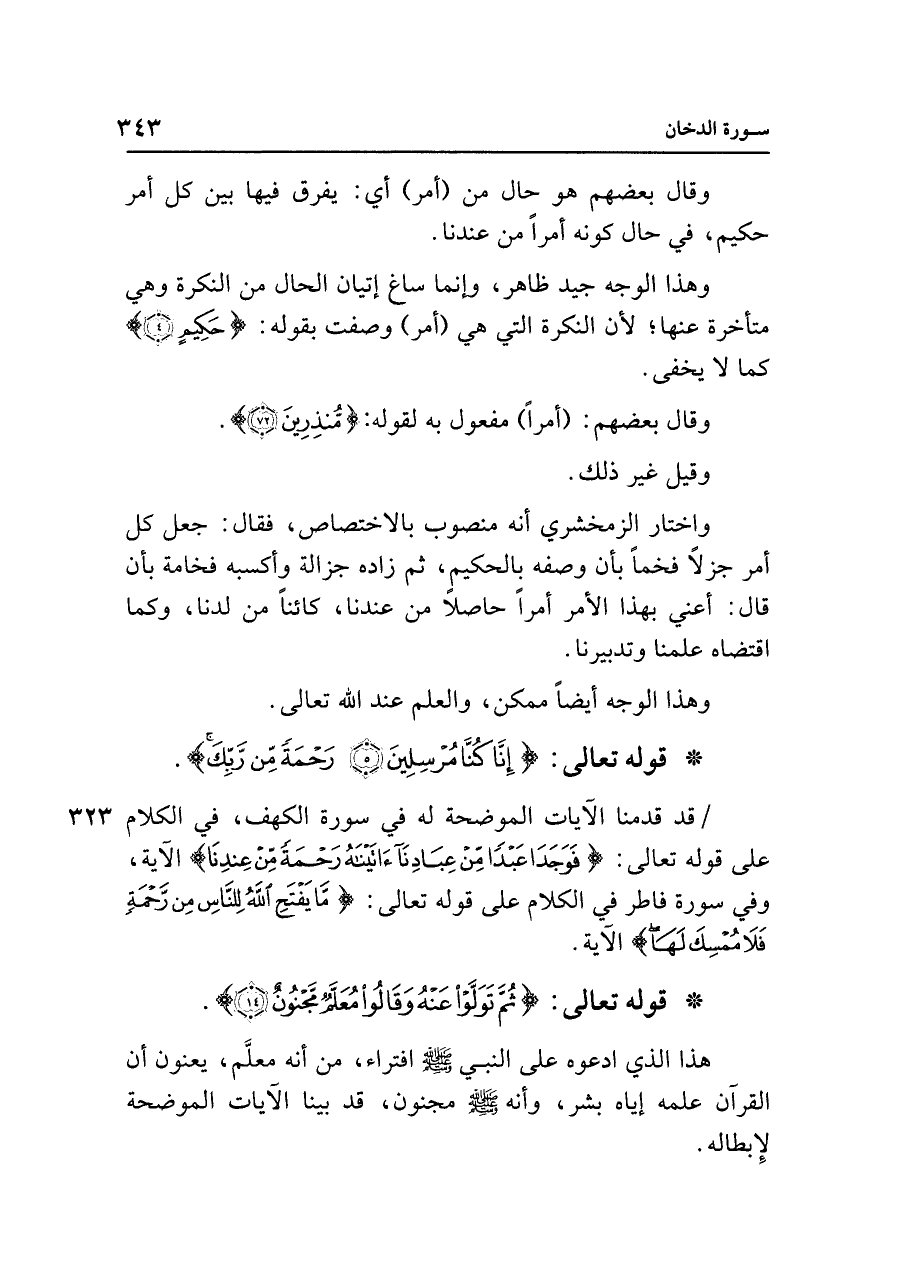 سـورة الدخان ٣٤٣
وقال بعضهم هو حال من (أمر) أي: يفرق فيها بين كل أمر
حكيم، في حال كونه أمراً من عندنا.
وهذا الوجه جيد ظاهر، وإنما ساغ إتيان الحال من النكرة وهي
متأخرة عنها؛ لأن النكرة التي هي (أمر) وصفت بقوله: ﴿حَكِيمٍ ٤﴾
كما لا يخفى.
وقال بعضهم: (أمراً) مفعول به لقوله: ﴿مُّنذِرِينَ ٧٢﴾.
وقيل غير ذلك.
واختار الزمخشري أنه منصوب بالاختصاص، فقال: جعل كل
أمر جزلاً فخماً بأن وصفه بالحكيم، ثم زاده جزالة وأكسبه فخامة بأن
قال: أعني بهذا الأمر أمراً حاصلاً من عندنا، كائناً من لدنا، وكما
اقتضاه علمنا وتدبيرنا.
وهذا الوجه أيضاً ممكن، والعلم عند الله تعالى.
* قوله تعالى: ﴿إِنَّا كُنَّا مُرْسِلِينَ ٥ رَحْمَةً مِّن رَّبِّكَۚ﴾.
/ قد قدمنا الآيات الموضحة له في سورة الكهف، في الكلام ٣٢٣
على قوله تعالى: ﴿فَوَجَدَا عَبْدًا مِّنْ عِبَادِنَآ ءَاتَيْنَٰهُ رَحْمَةً مِّنْ عِندِنَا﴾ الآية،
وفي سورة فاطر في الكلام على قوله تعالى: ﴿مَّا يَفْتَحِ ٱللَّهُ لِلنَّاسِ مِن رَّحْمَةٍ
فَلَا مُمْسِكَ لَهَاۖ﴾ الآية.
* قوله تعالى: ﴿ثُمَّ تَوَلَّوْا۟ عَنْهُ وَقَالُوا۟ مُعَلَّمٌ مَّجْنُونٌ ١٤﴾.
هذا الذي ادعوه على النبـي ﷺ افتراء، من أنه معلَّم، يعنون أن
القرآن علمه إياه بشر، وأنه ﷺ مجنون، قد بينا الآيات الموضحة
لإِبطاله.